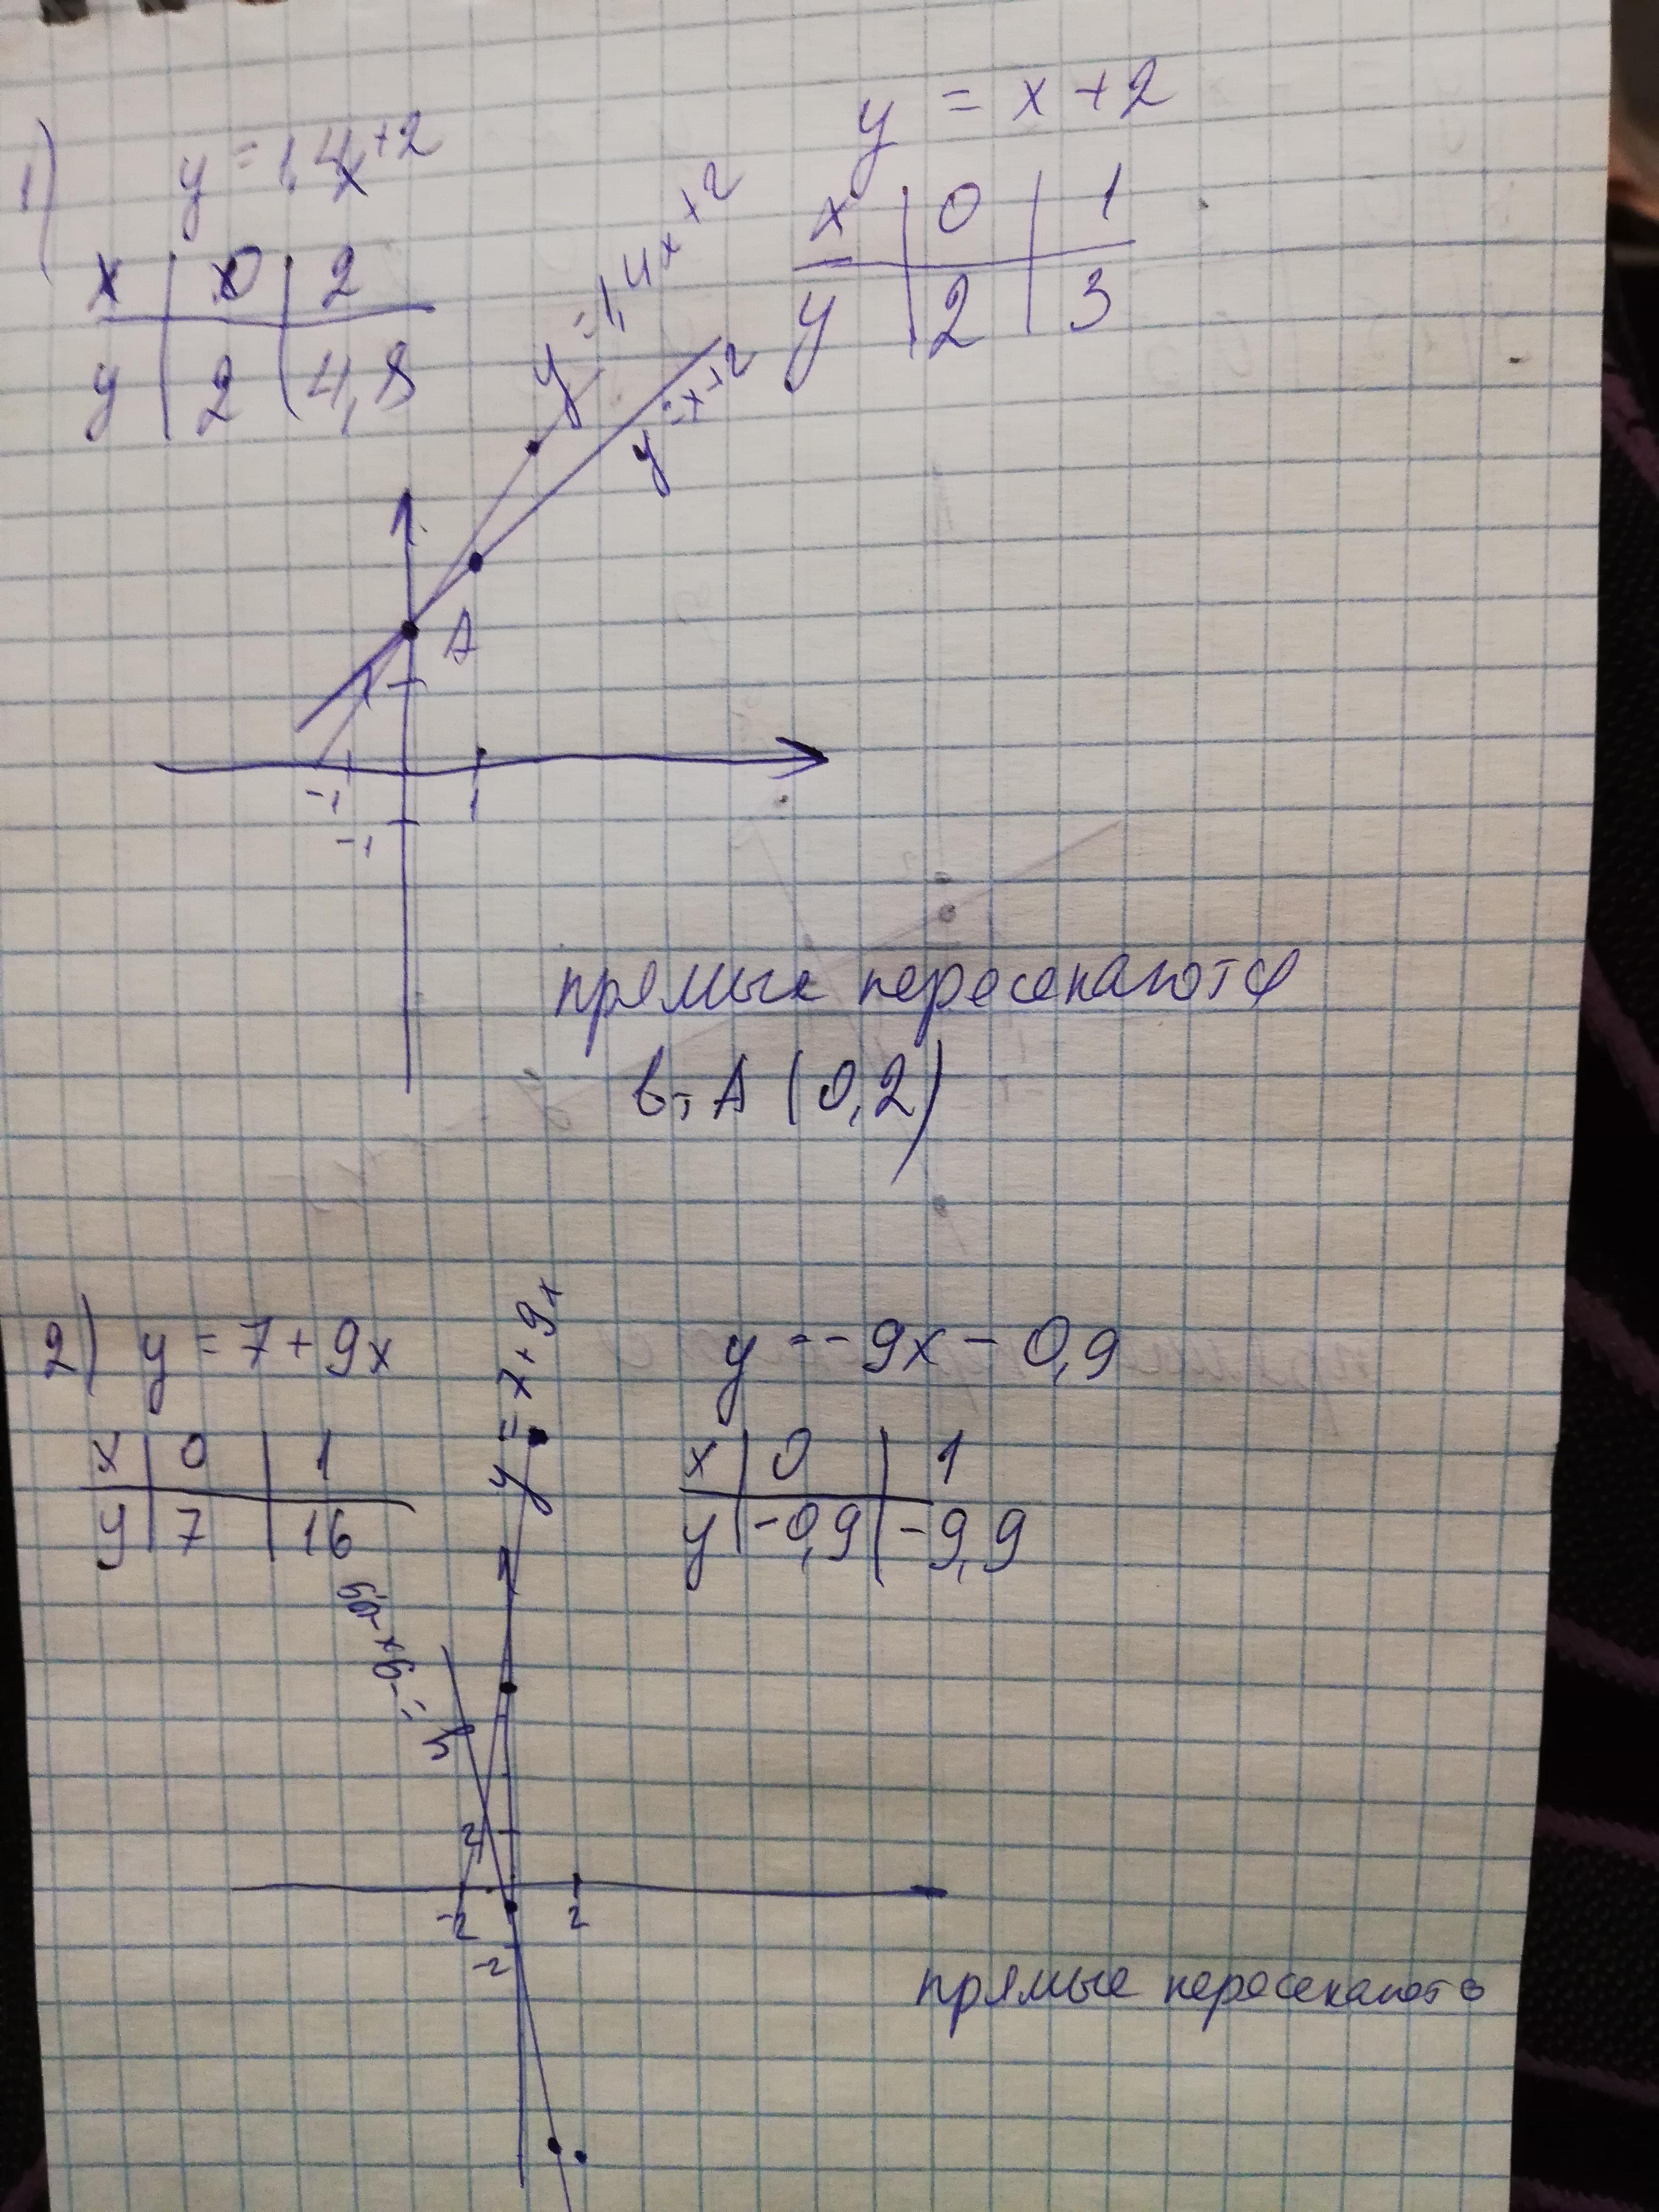 1) y = 1,4x+2
y = x+2
x | 0 | 2
y | 2 | 4,8
x | 0 | 1
y | 2 | 3
y = 1,4x+2
y = x+2
A
1
-1
1
-1
прямые пересекаются
в т. A (0,2)
2) y = 7+9x
y = 7+9x
y = -9x - 0,9
x | 0 | 1
y | 7 | 16
x | 0 | 1
y | -0,9 | -9,9
y = -9x-0,9
2
-2
2
-2
прямые пересекают